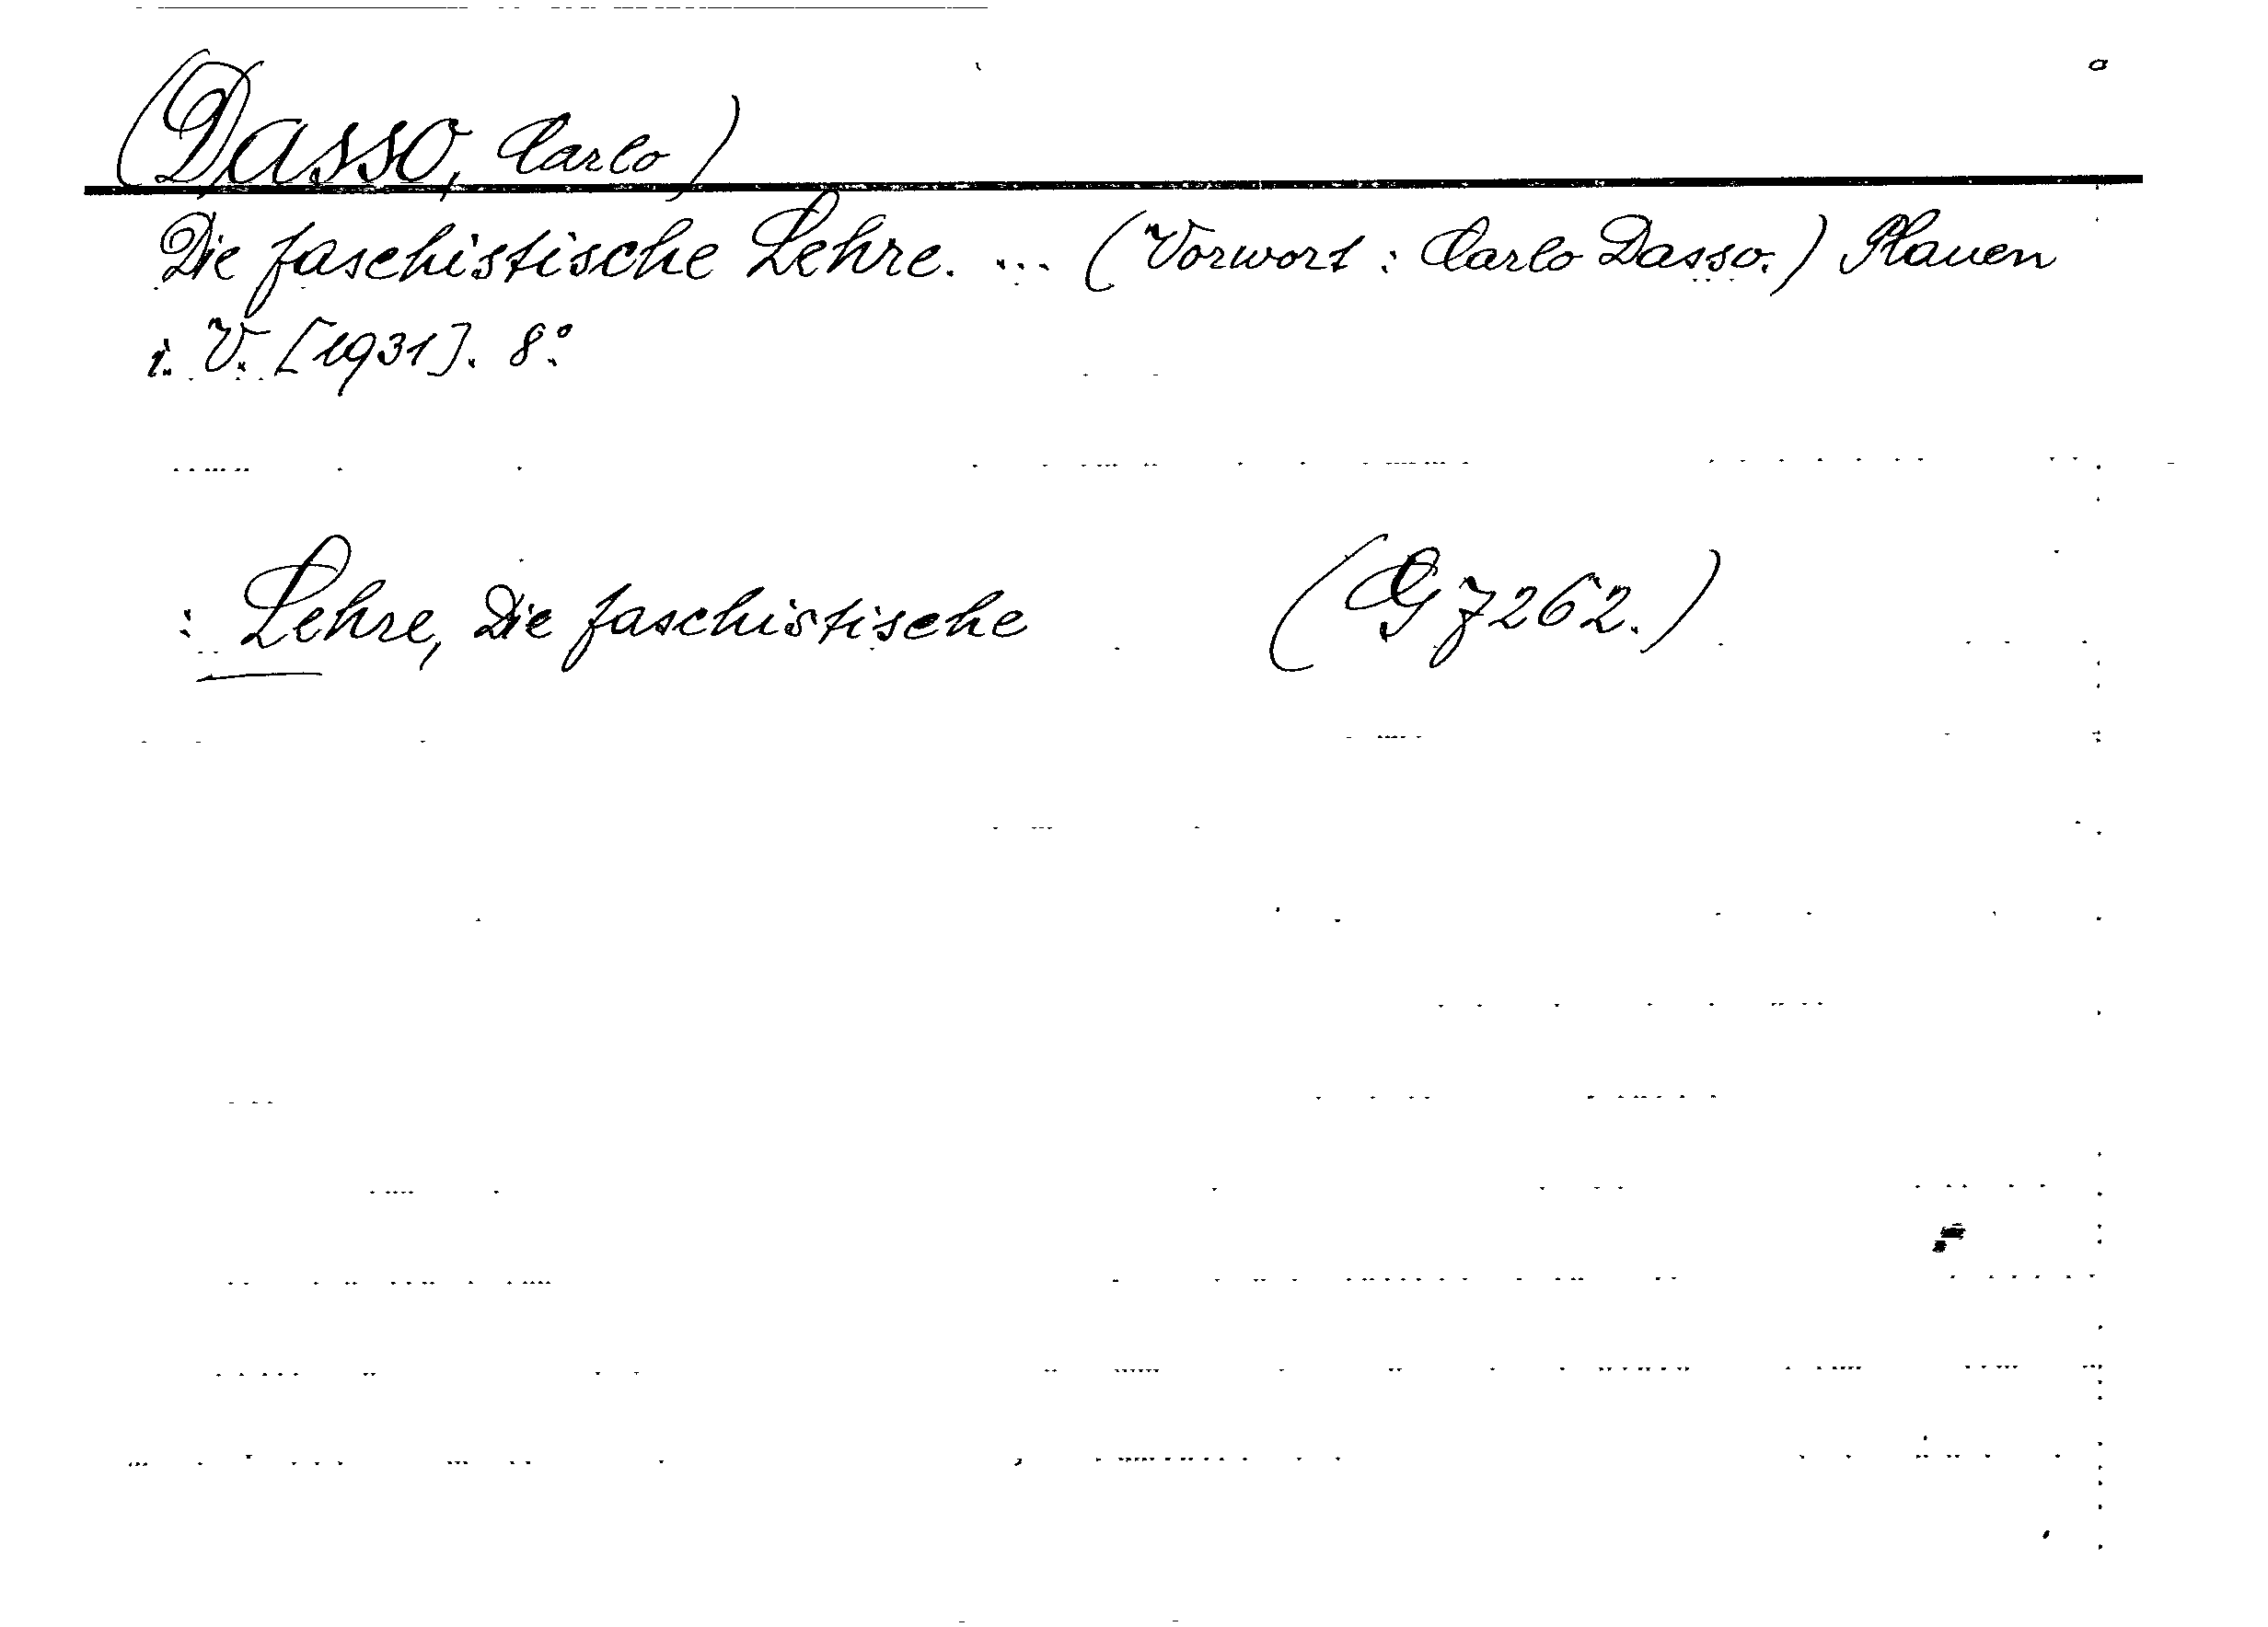 (Dasso, Carlo)
Die faschistische Lehre. ... (Vorwort: Carlo Dasso.) Plauen
i. V. [1931]. 8°.
: Lehre, Die faschistische (G 7262.)